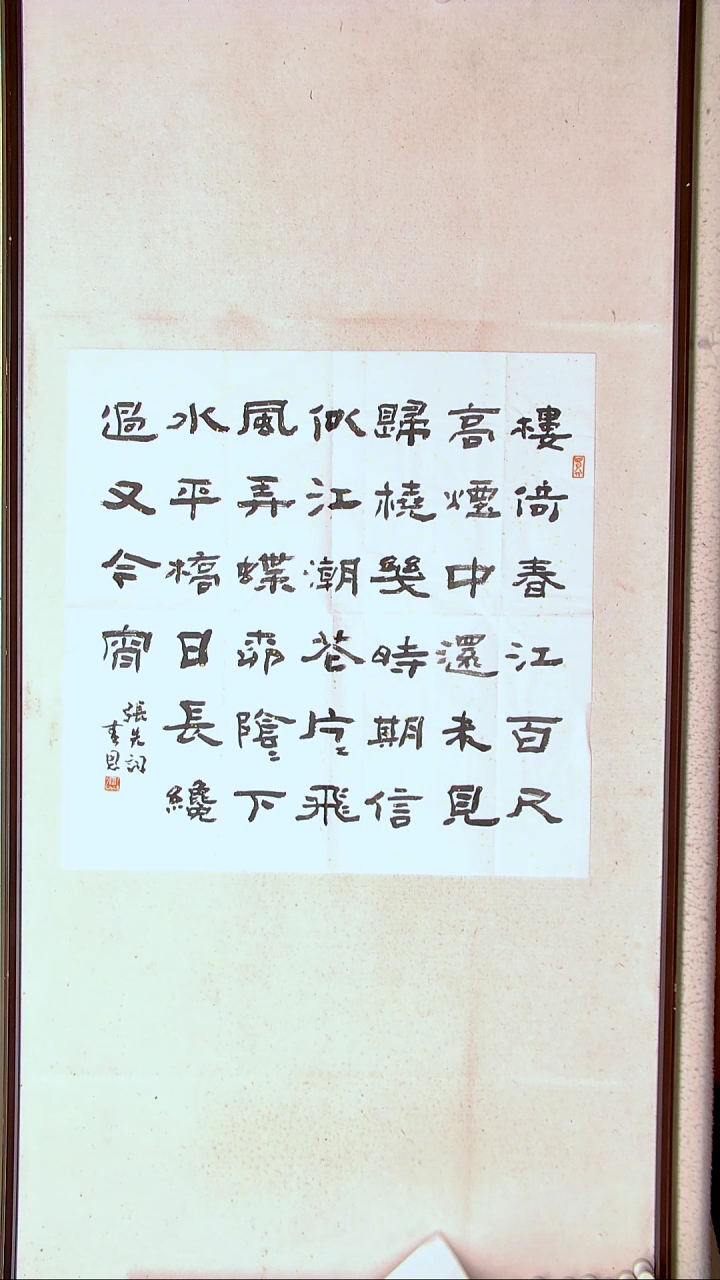 樓倚春江百尺
高煙中還未見
歸橈幾時期信
似江潮花片〻飛
風弄蝶柳陰〻下
水平橋日長纔
過又今宵
張先詞